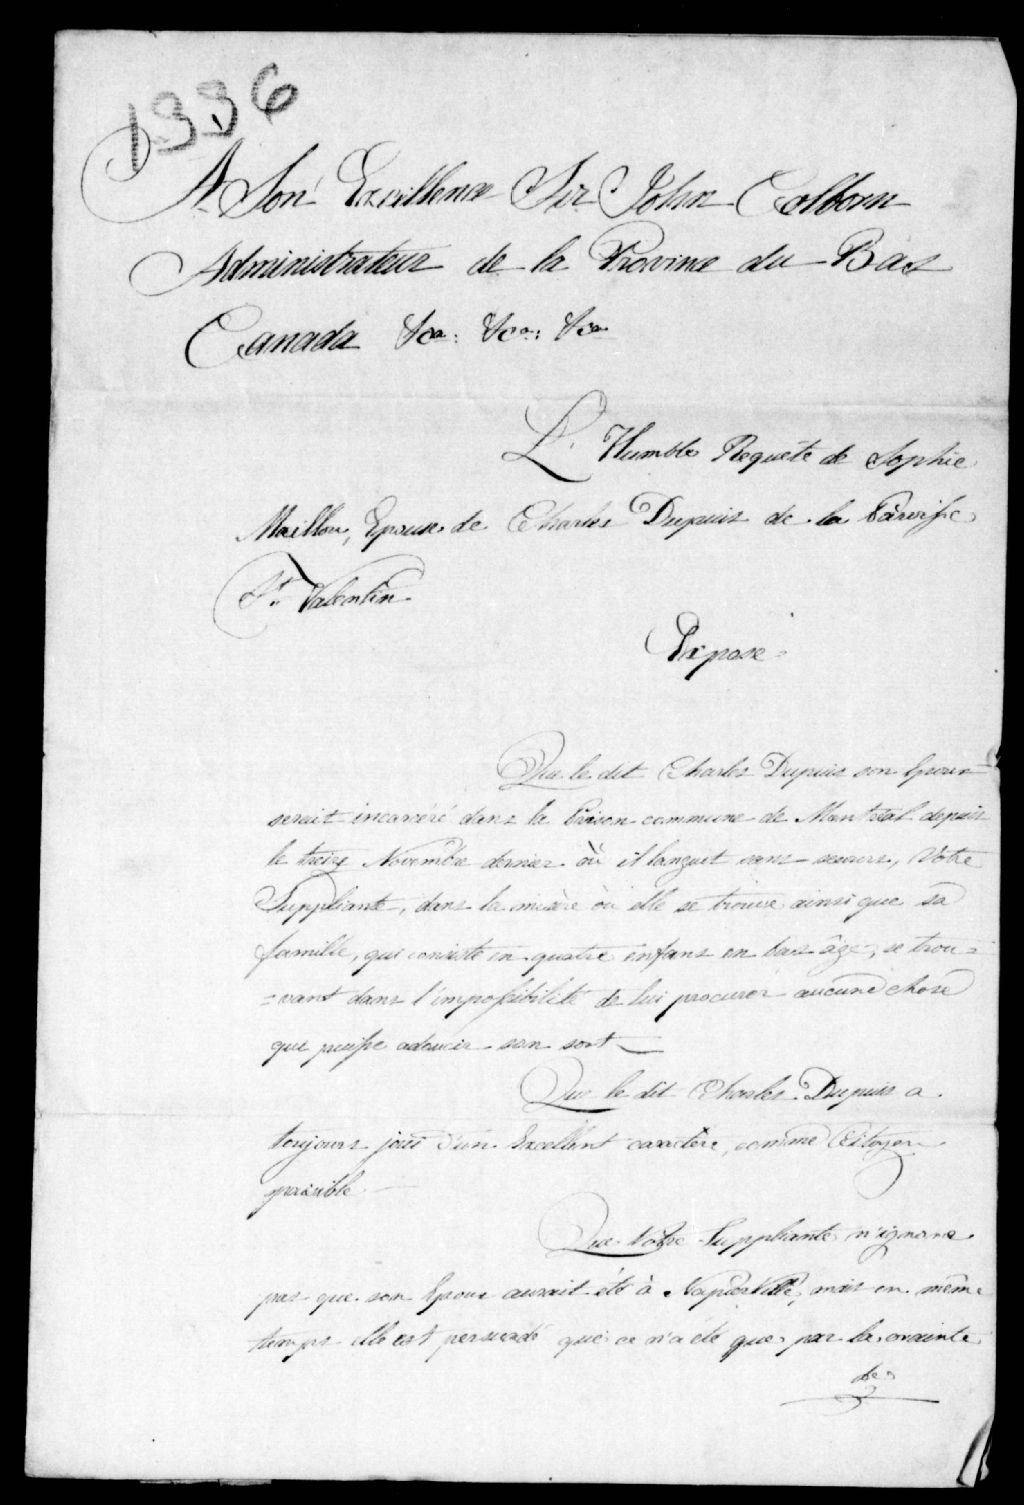 1336
A Son Excellence Sir John Colborn
Administrateur de la Province du Bas
Canada &ca: &ca: &ca
L'Humble Requête de Sophie
Maillou, Epouse de Charles Dupuis de la Paroisse
St. Valentin
Expose
Que le dit Charles Dupuis son Epoux
serait incarcéré dans la Prison commune de Montréal depuis
le treize Novembre dernier où il languit sans secours, Votre
Suppliante, dans la misère où elle se trouve ainsi que sa
famille, qui consiste en quatre enfans en bas âge, se trou=
=vant dans l'impossibilité de lui procurer aucune chose
qui puisse adoucir son sort —
Que le dit Charles Dupuis a
toujours joui d'un Excellent caractère, comme Citoyen
paisible —
Que Votre Suppliante n'ignore
pas que son Epoux aurait été à Napierville, mais en même
temps elle est persuadé que ce n'a été que par la crainte
de